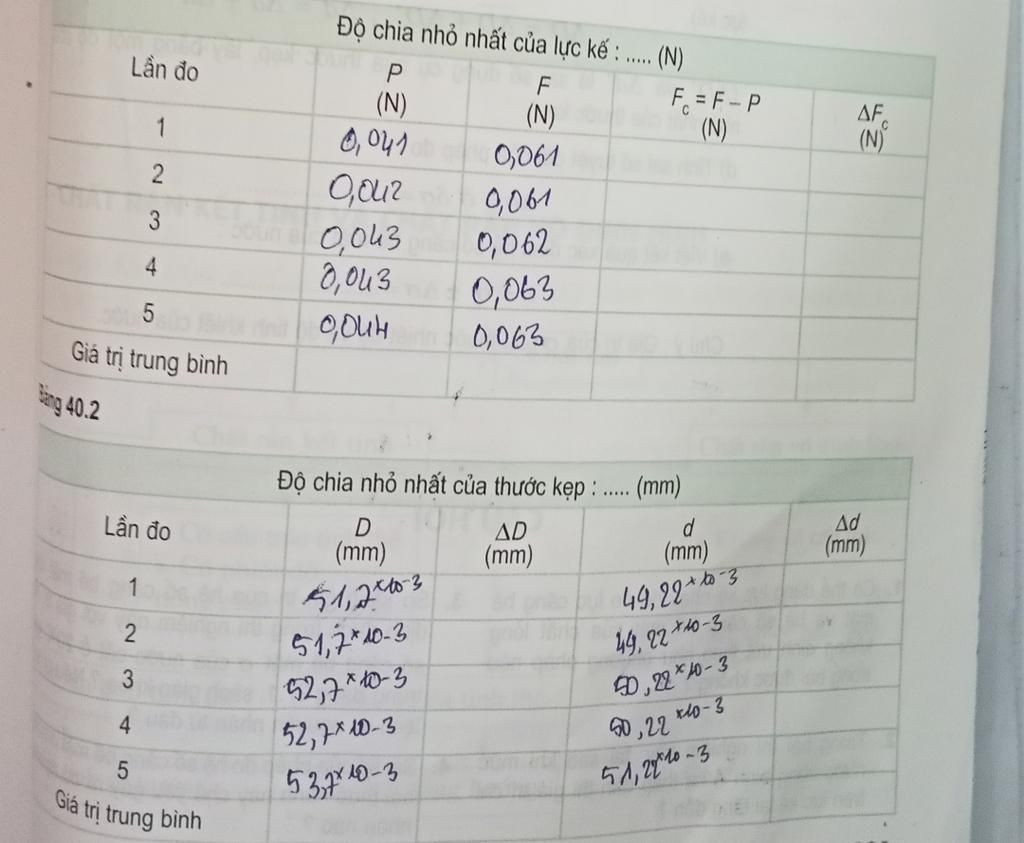 Độ chia nhỏ nhất của lực kế : ..... (N)
Lần đo P (N) F (N) F_c = F – P (N) ΔF_c (N)
1 0,041 0,061
2 0,042 0,061
3 0,043 0,062
4 0,043 0,063
5 0,044 0,063
Giá trị trung bình
Bảng 40.2
Độ chia nhỏ nhất của thước kẹp : ..... (mm)
Lần đo D (mm) ΔD (mm) d (mm) Δd (mm)
1 51,7×10-3 49,22×10-3
2 51,7×10-3 49,22×10-3
3 52,7×10-3 50,22×10-3
4 52,7×10-3 50,22×10-3
5 53,7×10-3 51,22×10-3
Giá trị trung bình